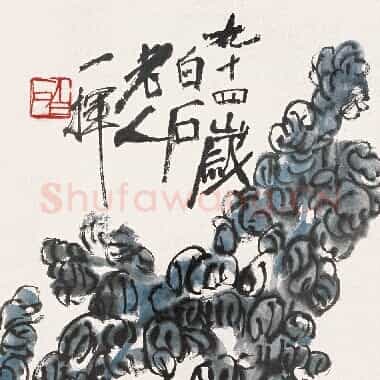 九十四歲
白石
老人
一揮
ShufawangCN